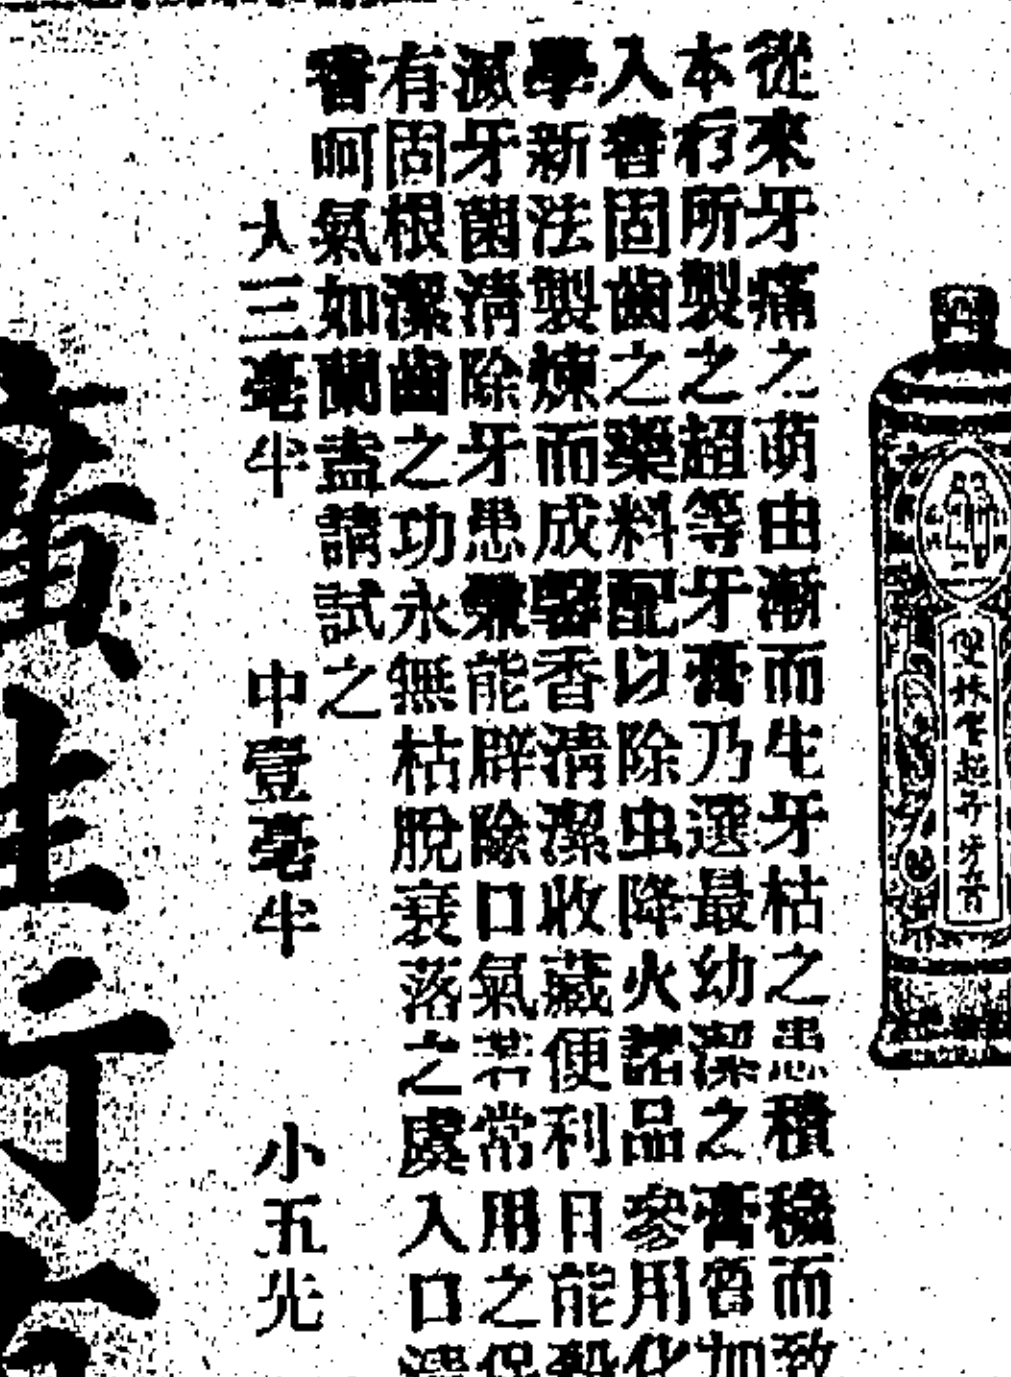 從來牙痛之萌由漸而生牙枯之患積穢而致
本行所製之超等牙膏乃選最幼潔之膏質加
入善固齒之藥料配以除虫降火諸品參用化
學新法製煉而成馨香清潔收藏便利日能殺
滅牙菌清除牙患兼能辟除口氣若常用之保
有固根潔齒之功永無枯脫衰落之虞入口清
香呵氣如蘭盍請試之
大三毫半 中壹毫半 小五先
廣生行
雙妹 超 牙膏